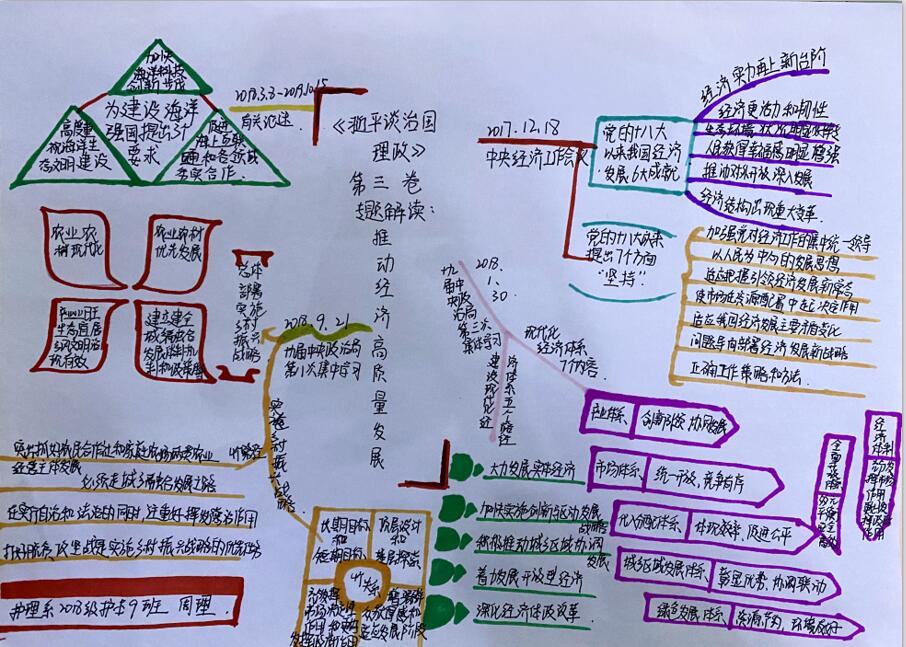 加快
海洋科技
创新步伐
为建设海洋
强国提出3个
要求
高度重
视海洋生
态文明建设
促进
海上互联
互通和各领域
务实合作.
2018.3.3-2019.10.15
有关论述.
《习近平谈治国
理政》
第三卷
专题解读:
推动经济高质量发展
2017.12.18
中央经济工作会议
党的十八大
以来我国经济
发展6大成就
经济实力再上新台阶
经济更活力和韧性
生态环境状况明显好转
人民获得幸福感明显增强
推动对外开放深入发展
经济结构出现重大变革.
党的十八大以来
提出7个方面
"坚持".
加强党对经济工作的集中统一领导
以人民为中心的发展思想
适应把握引领经济发展新常态
使市场在资源配置中起决定作用
适应我国经济发展主要矛盾变化
问题导向部署经济发展新战略
正确工作策略和方法.
农业农
村现代化
农业农村
优先发展
建立健全
城乡融合
总体部署实施乡村振兴战略
2018.9.21
十九届中央政治局
第八次集中学习
实施乡村振兴战略
必须走城乡融合发展之路
在实行自治和法治的同时,注重好挥发德治作用
打好脱贫攻坚战是实施乡村振兴战略的优先任务
护理系2018级护士9班 周理.
长期目标
和
短期目标
顶层设计
和
基层探索
2018.
1.
30
十九届中央政治局第三次集体学习
建设现代化经济体系五个路径
现代化
经济体系
7个内容
大力发展实体经济
加快实施创新驱动发展
战略
积极推动城乡区域协调
发展
着力发展开放型经济
深化经济体政改革
产业体系、创新引领 协同发展
市场体系、统一开放,竞争有序
收入分配体系、体现效率,促进公平
城乡区域发展体系、彰显优势、协调联动
绿色发展体系、资源节约,环境友好